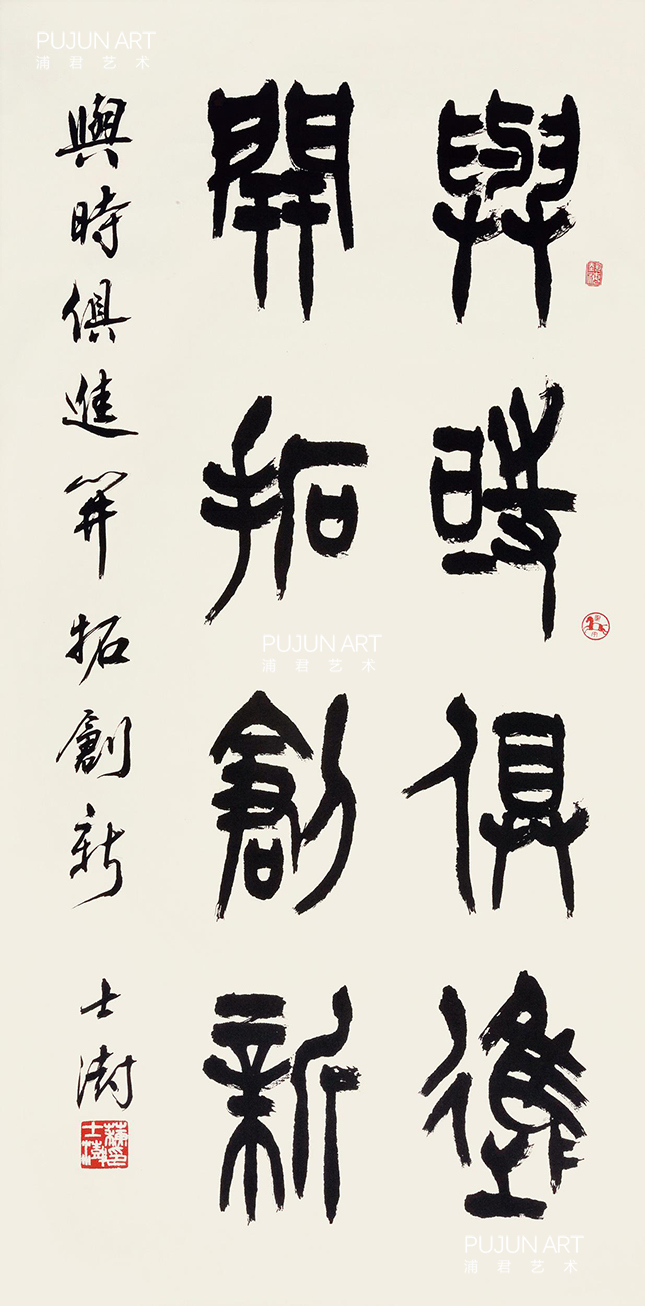 與時俱進
開拓創新
與時俱進開拓創新
士澍
蘇士澍印
PUJUN ART
浦君艺术
PUJUN ART
浦君艺术
PUJUN ART
浦君艺术